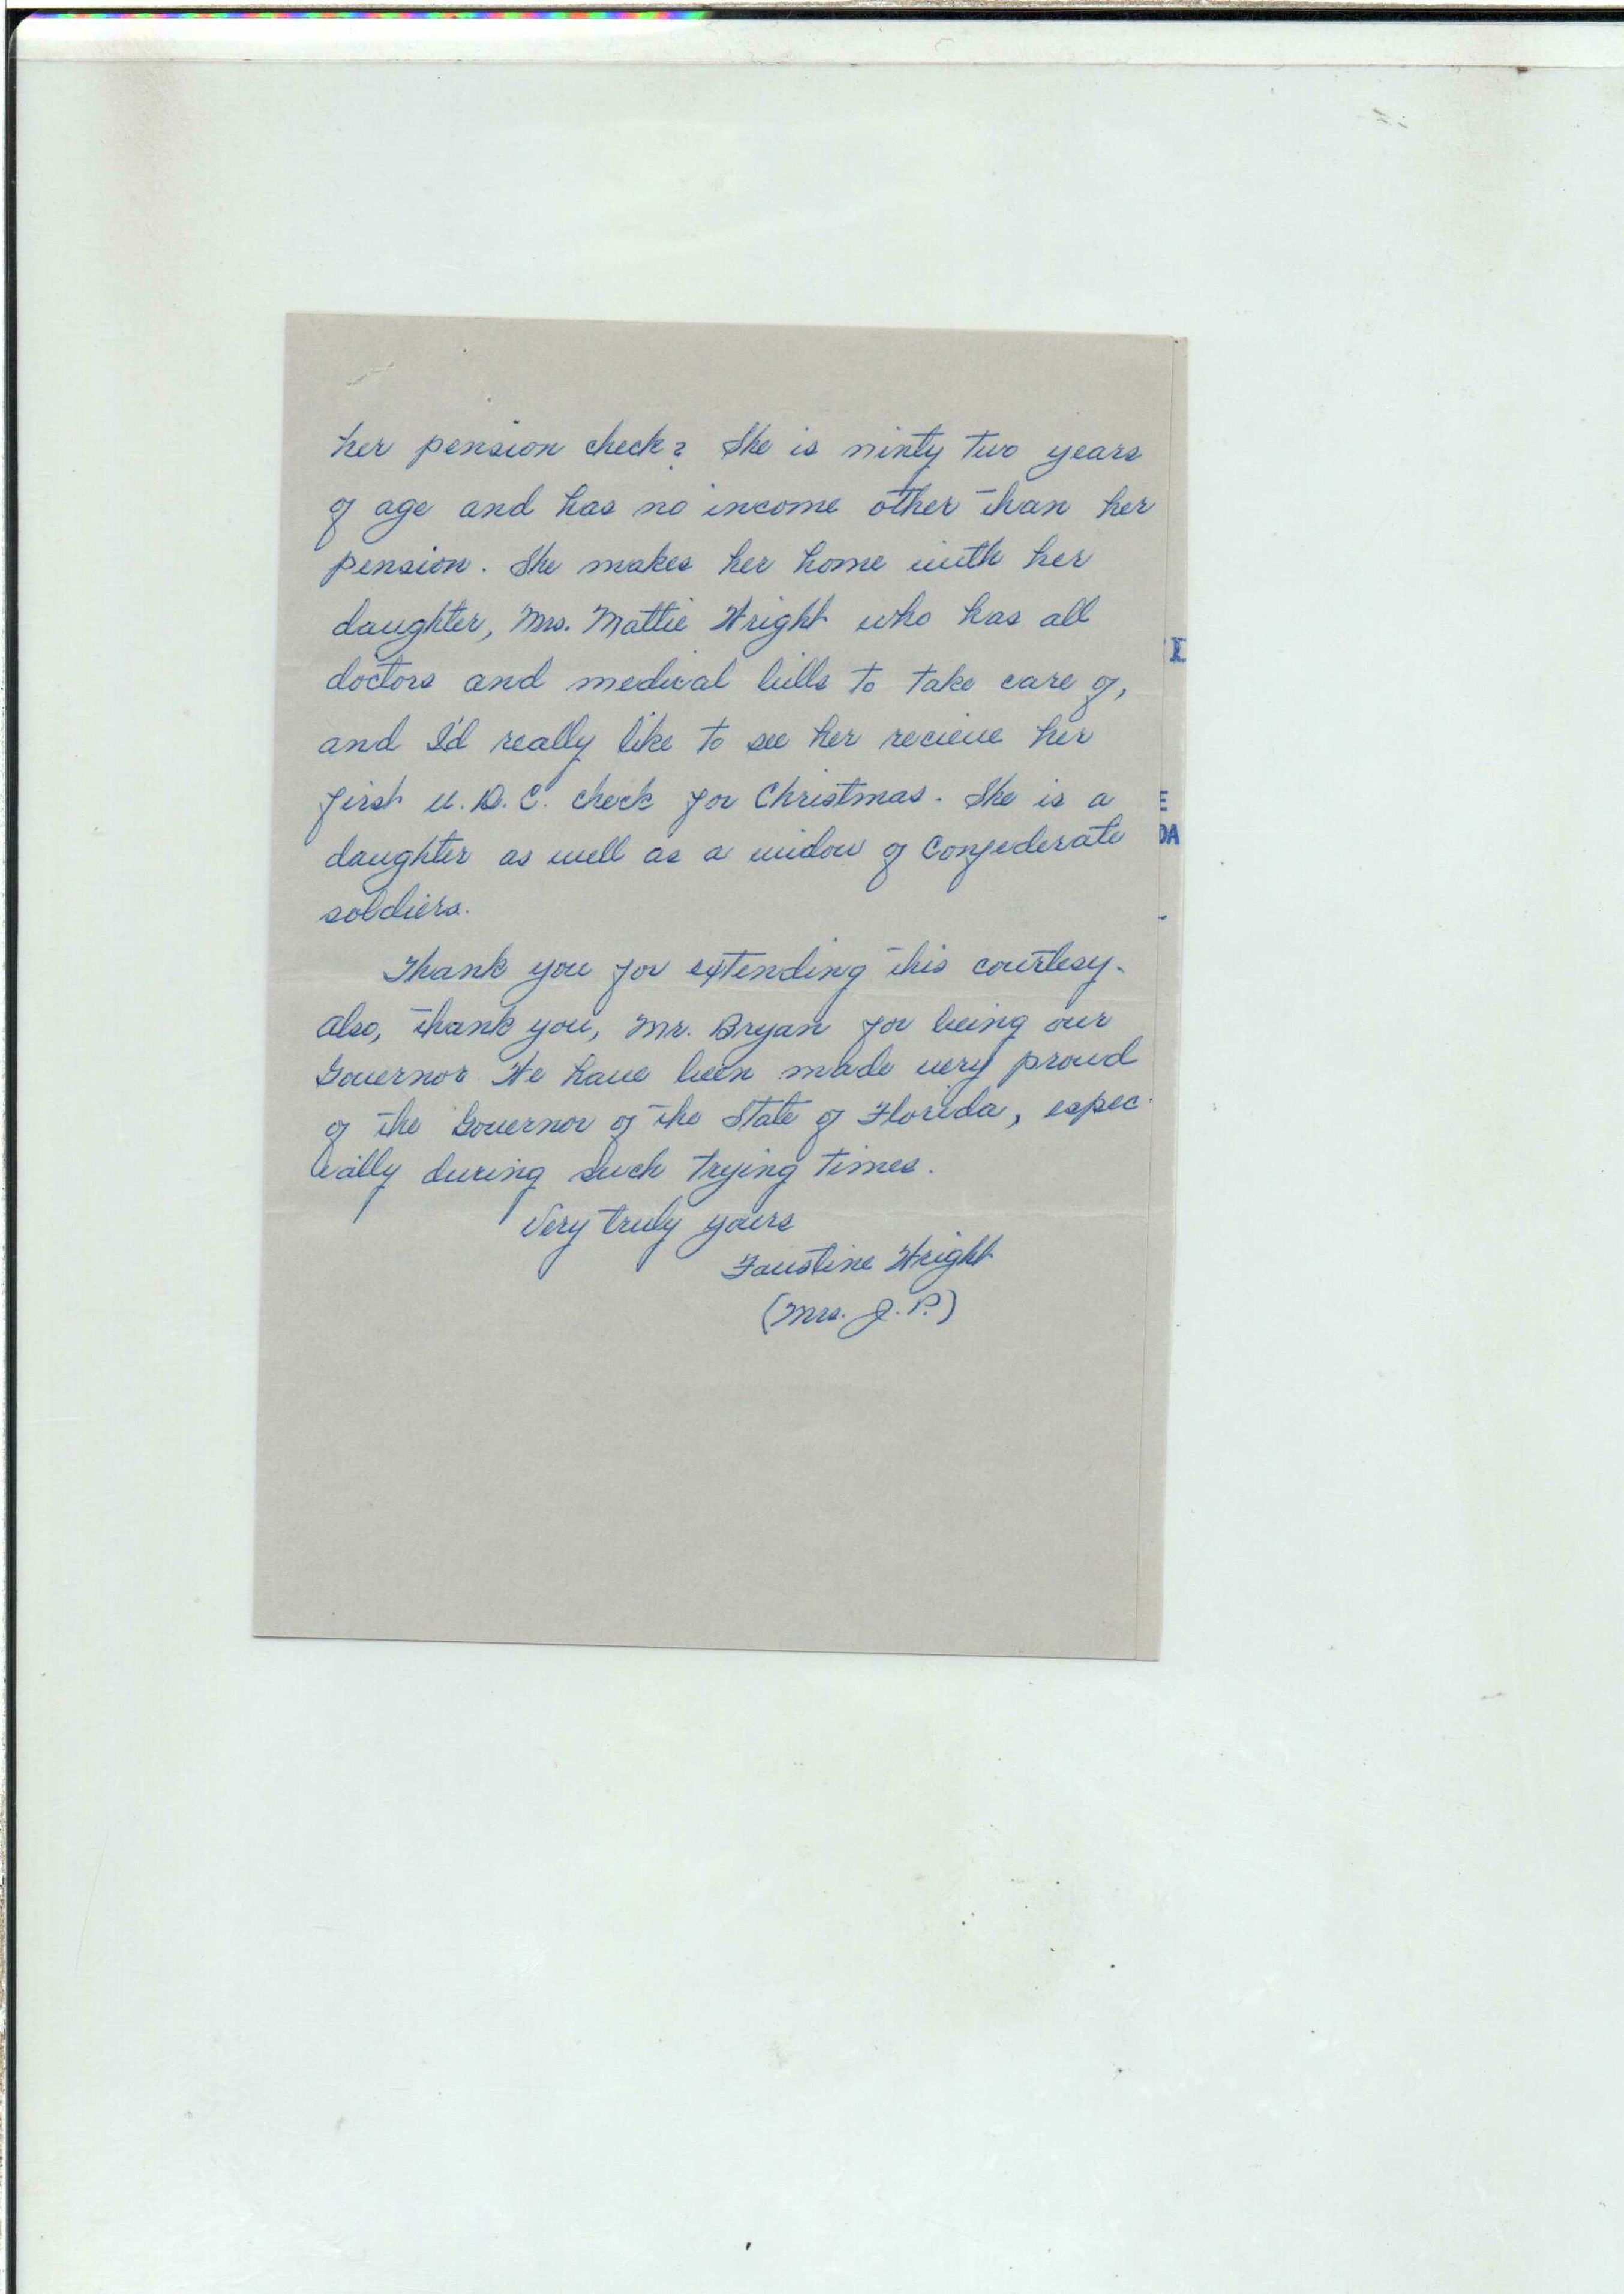 her pension check? She is ninty two years
of age and has no income other than her
pension. She makes her home with her
daughter, Mrs. Mattie Wright who has all
doctors and medical bills to take care of,
and I'd really like to see her recieve her
first U.D.C. check for Christmas. She is a
daughter as well as a widow of Confederate
soldiers.
Thank you for extending this courtesy.
Also, thank you, Mr. Bryan for being our
Governor We have been made very proud
of the Governor of the State of Florida, espec-
ially during such trying times.
Very truly yours
Faustine Wright
(Mrs. J. P.)
E
DA